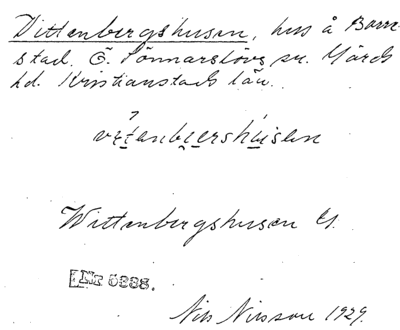 Vittenbergshusen, hus å Bom-
stad. Ö. Sönnarslövs sn. Gärds
hd. Kristianstads län.
Wittenbergshusen
Nr 5888.
Nils Nilsson 1929.